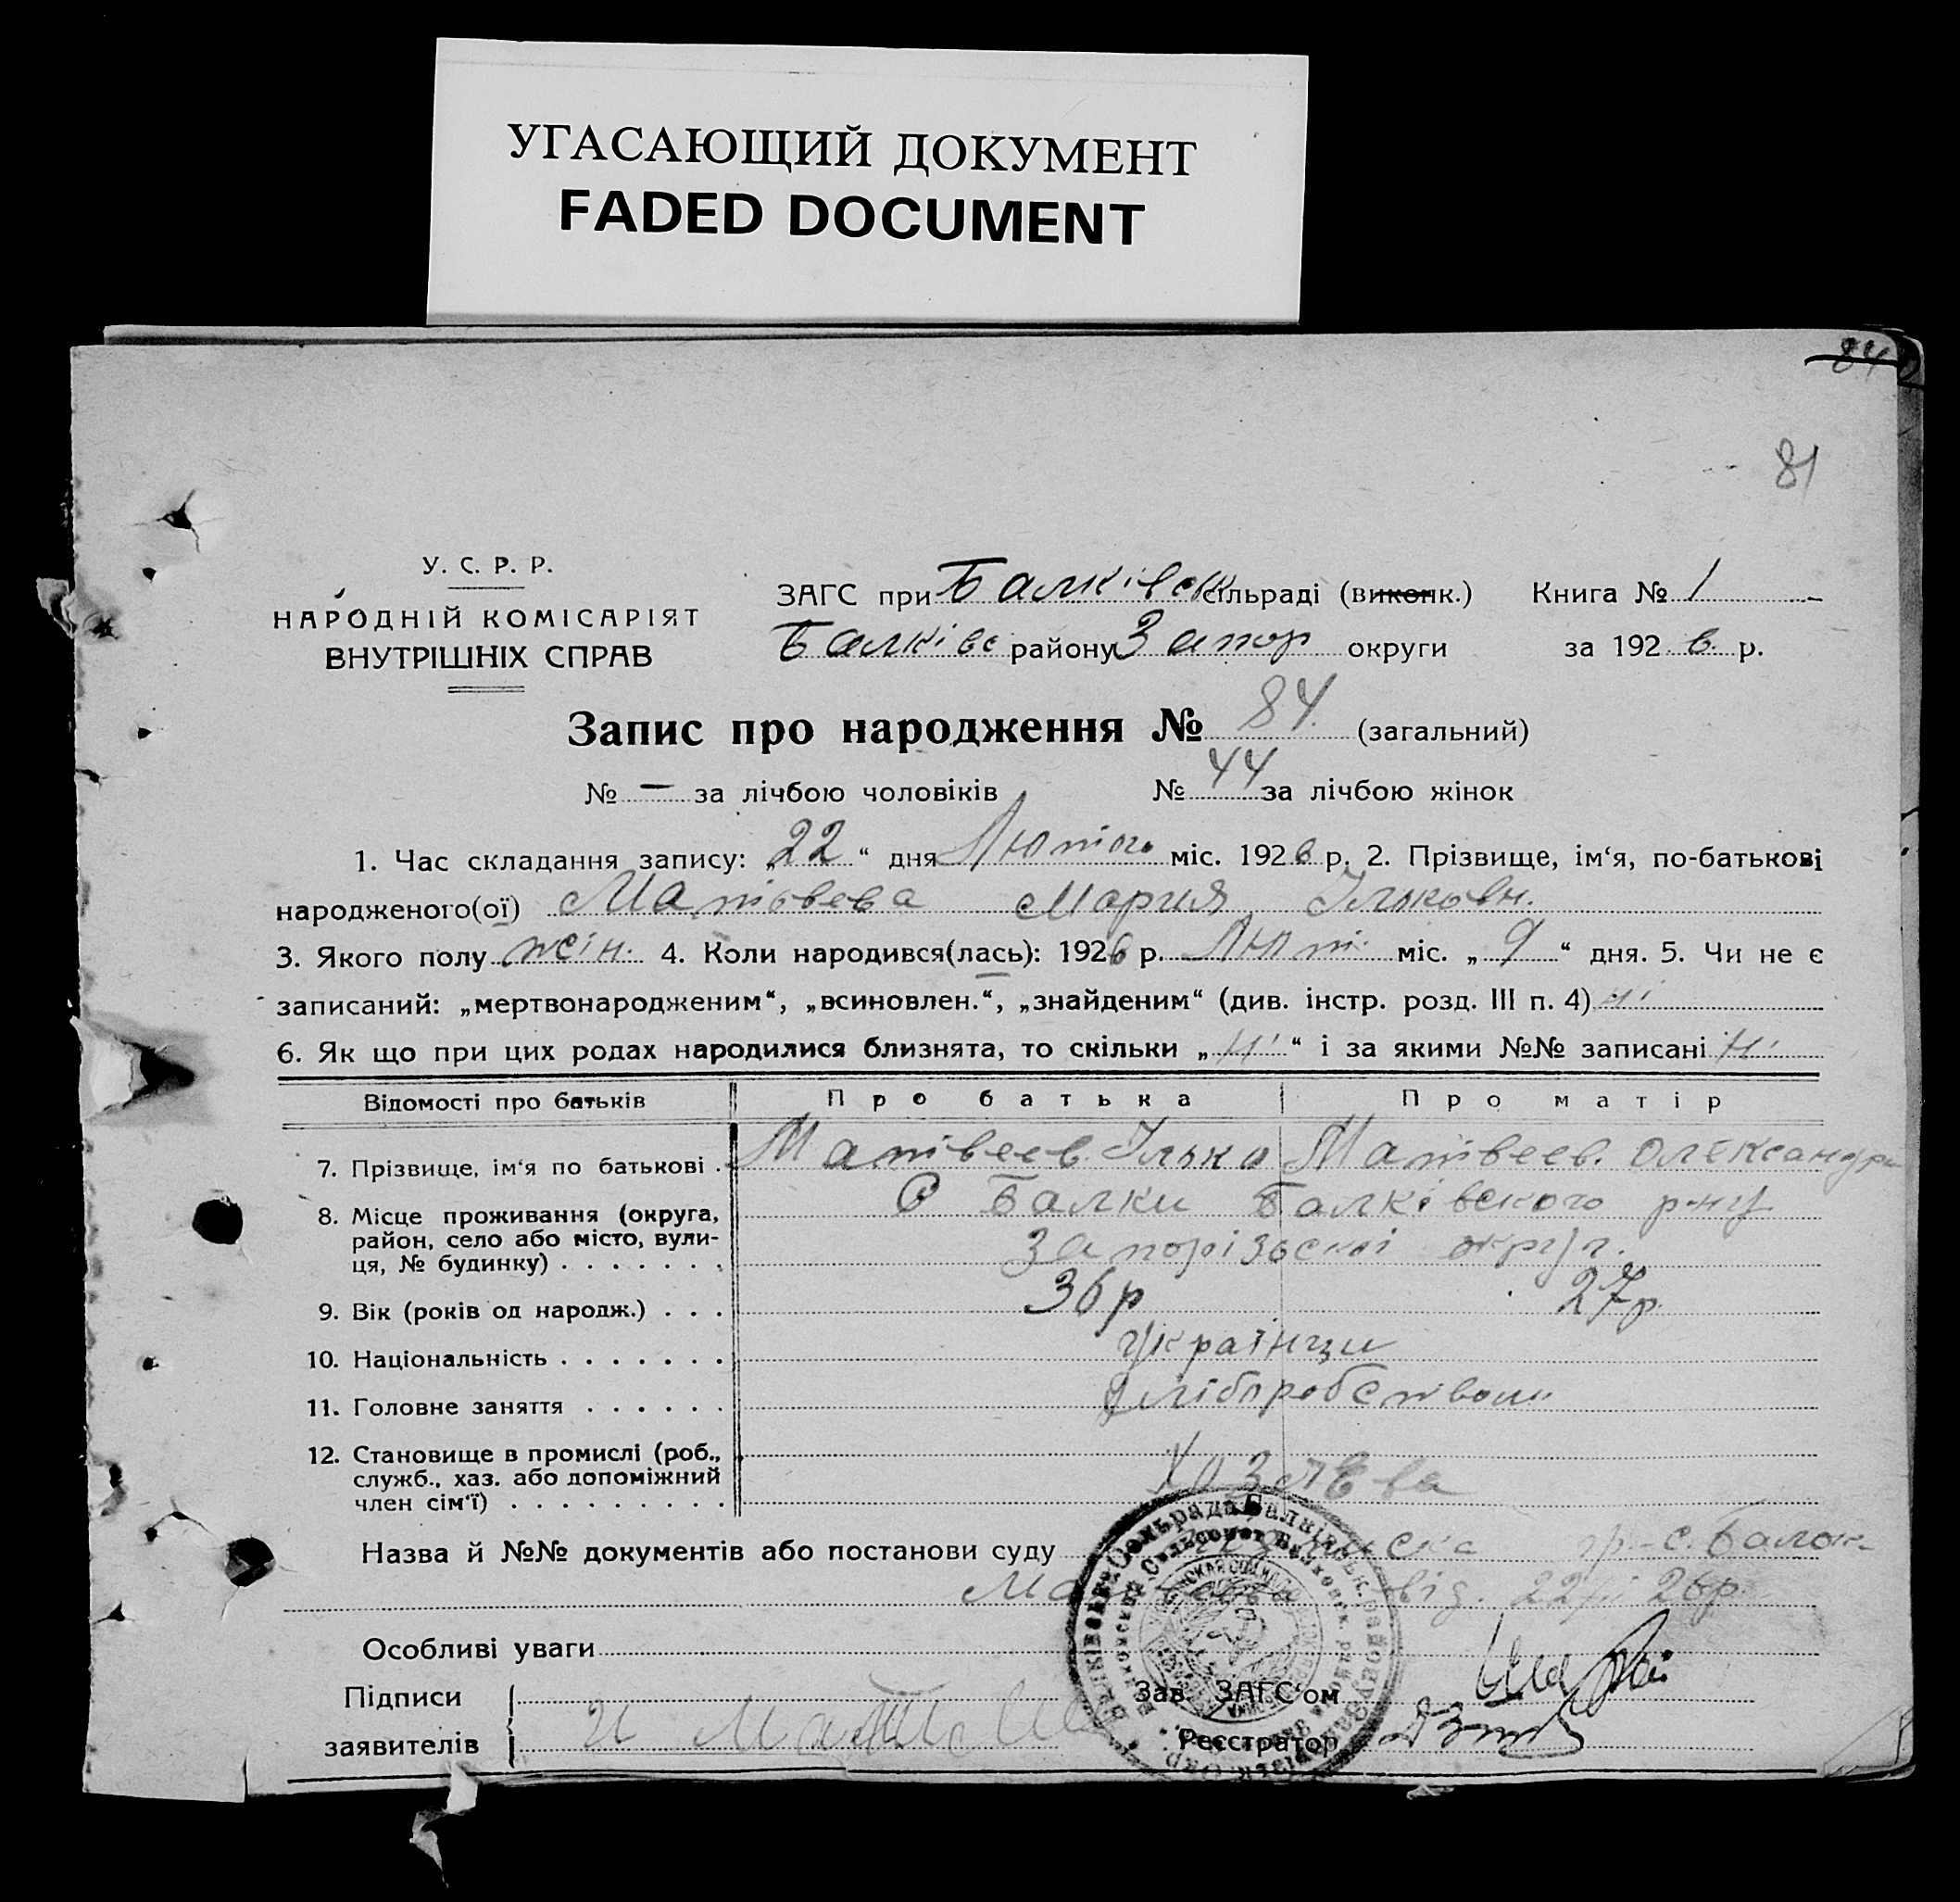 УГАСАЮЩИЙ ДОКУМЕНТ
FADED DOCUMENT
84
81
У. С. Р. Р.
НАРОДНІЙ КОМІСАРІЯТ
ВНУТРІШНІХ СПРАВ
ЗАГС при Балківськ сільраді (виконк.) Книга № 1
Балківс району Запор округи за 1926 р.
Запис про народження № 84. (загальний)
№ — за лічбою чоловіків № 44 за лічбою жінок
1. Час складання запису: „22“ дня Лютого міс. 1926 р. 2. Прізвище, ім‘я, по-батькові
народженого(ої) Матвеева Мария Ільковн.
3. Якого полу жін. 4. Коли народився(лась): 1926 р. Лют. міс. „9“ дня. 5. Чи не є
записаний: „мертвонародженим“, „всиновлен.“, „знайденим“ (див. інстр. розд. III п. 4) ні
6. Як що при цих родах народилися близнята, то скільки „ні“ і за якими №№ записані ні
Відомості про батьків Про батька Про матір
7. Прізвище, ім‘я по батькові . Матвеев. Ілько Матвеев. Олександра
8. Місце проживання (округа, район, село або місто, вули- ця, № будинку) . . . . . . . С Балки Балківского р-ну
Запорізської округ.
9. Вік (років од народж.) . . . 36 р 27 р.
10. Національність . . . . . . . Українци
11. Головне заняття . . . . . . хліборобством
12. Становище в промислі (роб., служб., хаз. або допоміжний член сім‘ї) . . . . . . . . . Хозяева
Назва й №№ документів або постанови суду гр-с. Балок
від. 22/II 26р.
Особливі уваги
Підписи Зав. ЗАГС‘ом
заявителів И Реєстратор